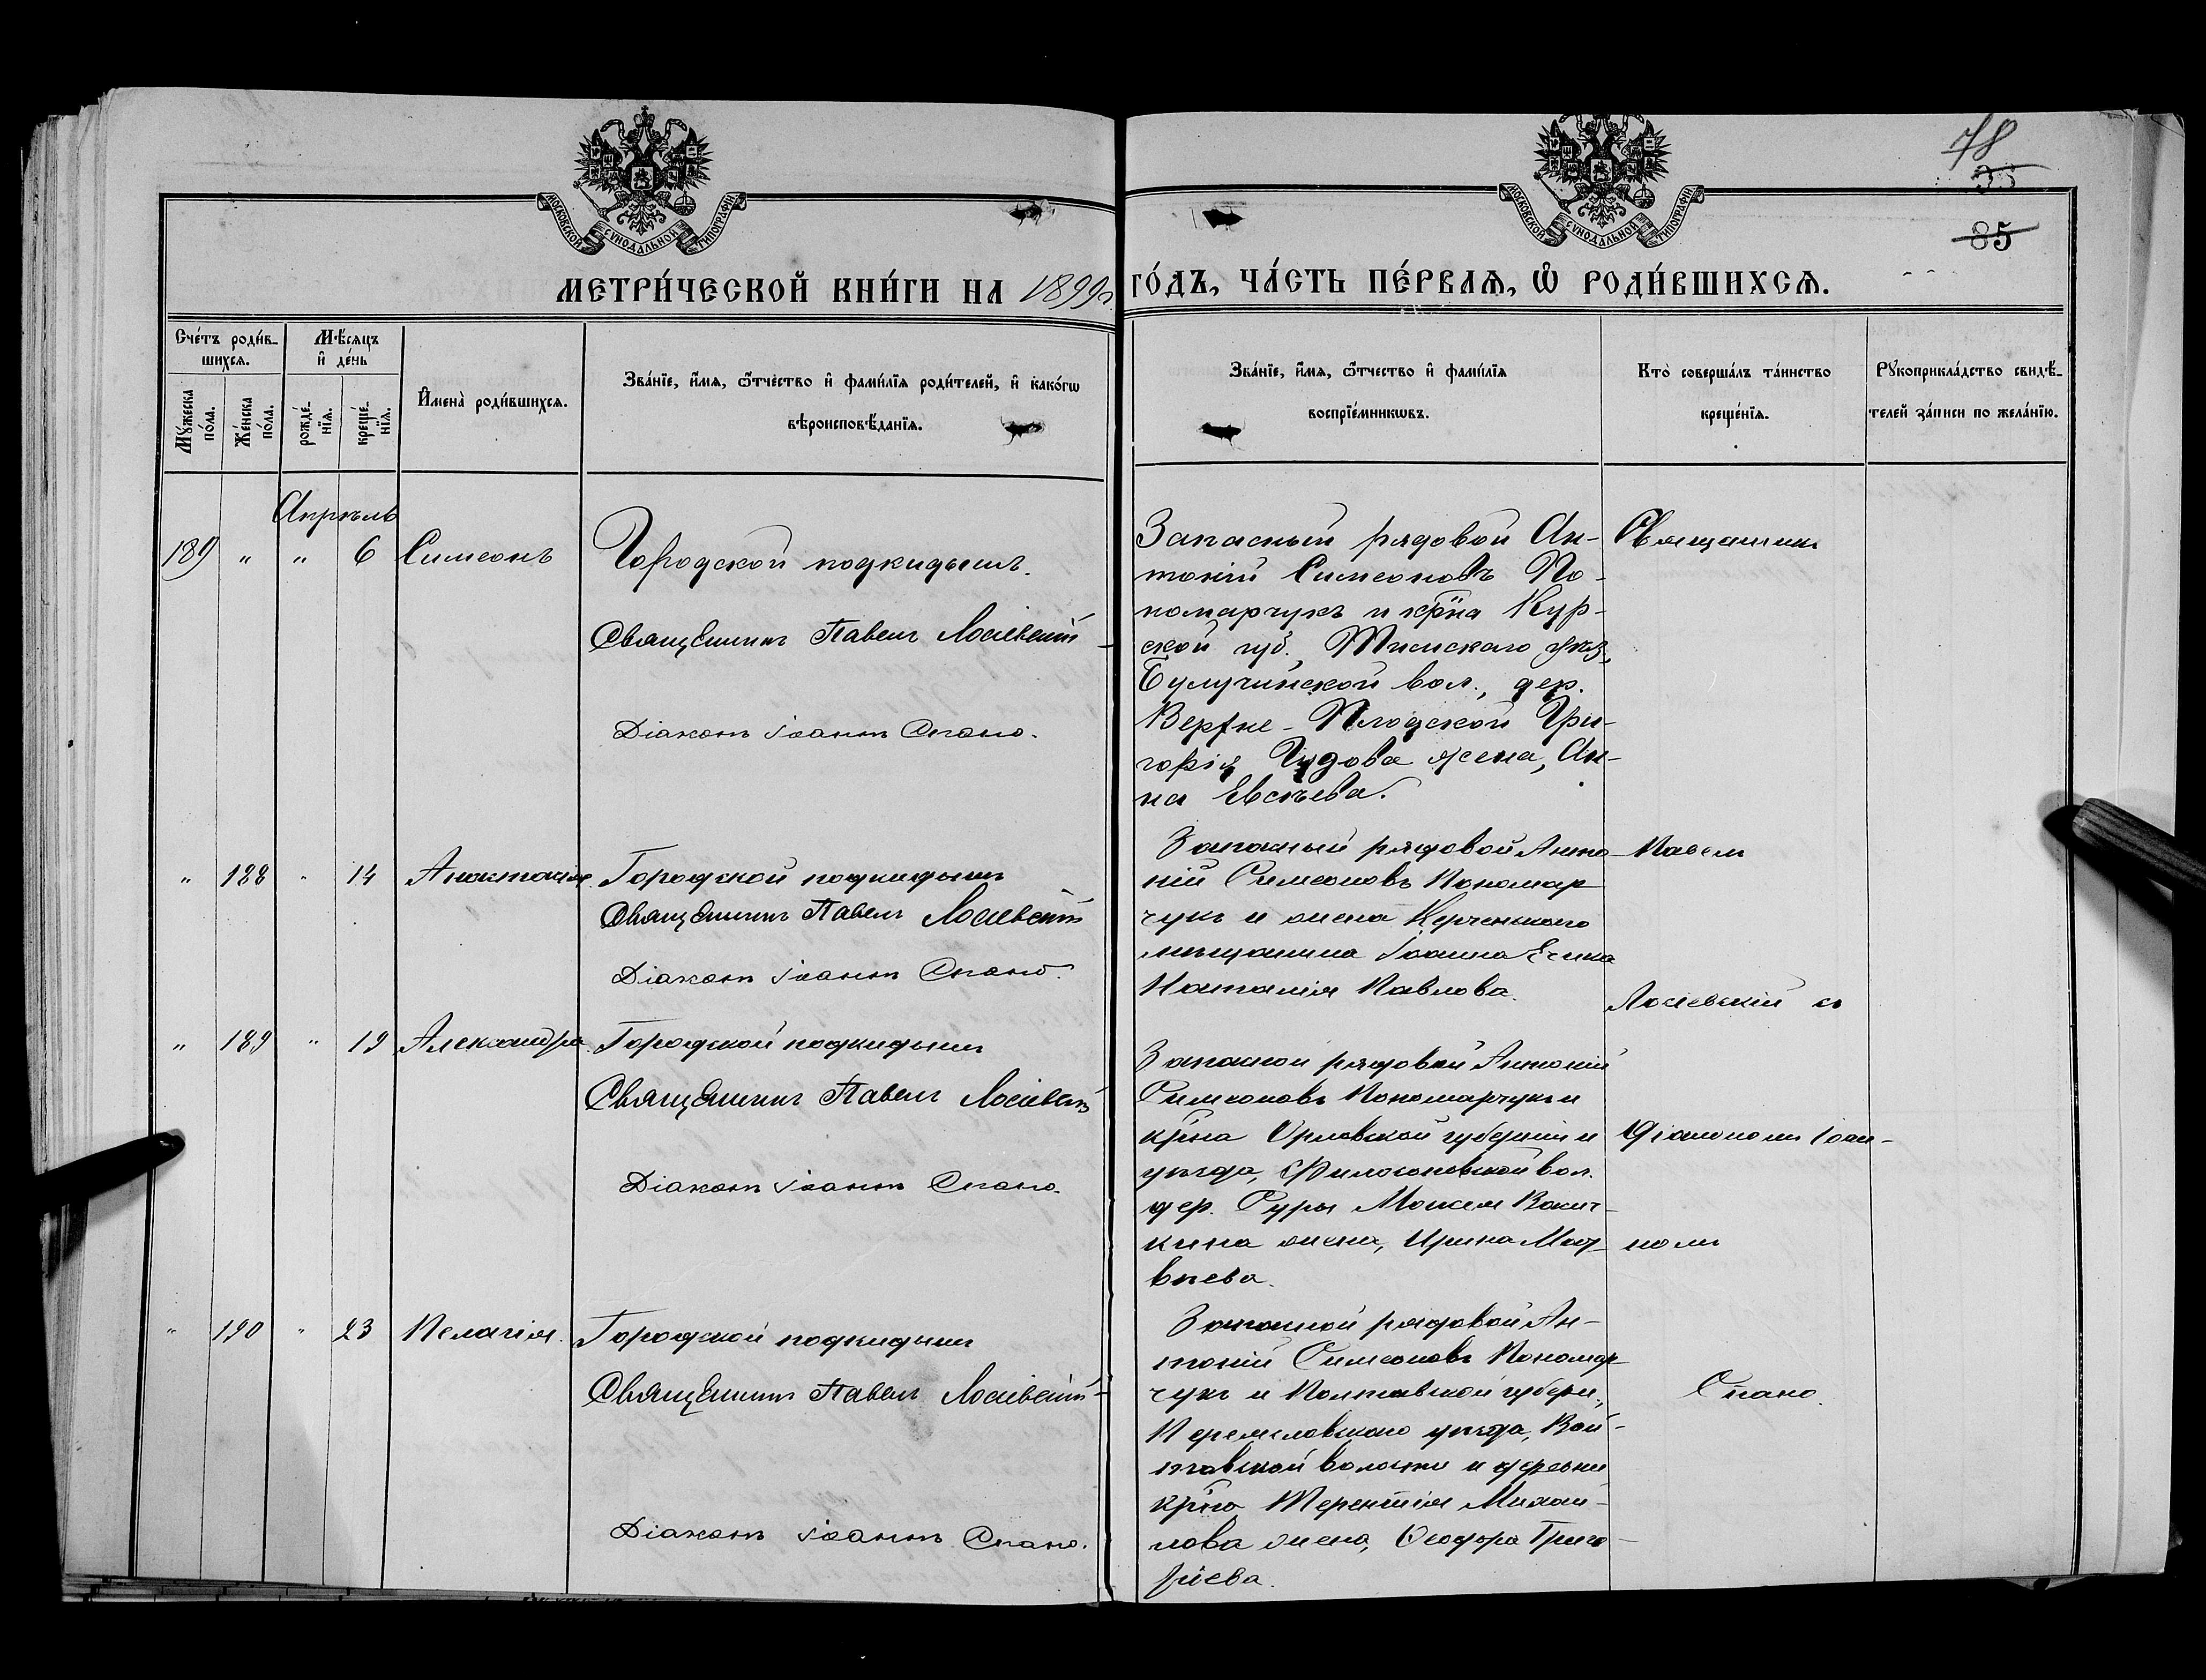 78
35
85
МОСКОВСКОЙ СѴНОДАЛЬНОЙ ТИПОГРАФІИ
МОСКОВСКОЙ СѴНОДАЛЬНОЙ ТИПОГРАФІИ
МЕТРИ́ЧЕСКОЙ КНИ́ГИ НА 1899 г. ГО́ДЪ, ЧА́СТЬ ПЕ́РВАѦ, Ѽ РОДИ́ВШИХСѦ.
Сче́тъ роди́в-
шихсѧ.
Му́жеска по́ла.
Же́нска по́ла.
Мѣ́сѧцъ
и҆ де́нь
рожде́-
нїѧ.
креще́-
нїѧ.
И҆мена̀ роди́вшихсѧ.
Зва́нїе, и҆́мѧ, ѻ҆́тчество и҆ фами́лїѧ роди́телей, и҆ како́гѡ
вѣроисповѣ́данїѧ.
Зва́нїе, и҆́мѧ, ѻ҆́тчество и҆ фами́лїѧ
воспрїе́мникѡвъ.
Кто̀ соверша́лъ та́инство
креще́нїѧ.
Рꙋкоприкла́дство свидѣ́-
телей за́писи по жела́нїю.
Апрѣль
189 " " 6 Симеонъ
Городской подкидышъ.
Священникъ Павелъ Лосіевскій
Діаконъ Іоаннъ Спано.
Запасный рядовой Ан-
тоній Симеоновъ По-
номарчукъ и крѣ̃на Кур-
ской губ., Тимскаго уѣз.,
вол., дер.
Верхне- Гри-
горія Чудова жена, Ан-
на Евсѣева.
Священникъ
" 188 " 14 Анастасія.
Городской подкидышъ
Священникъ Павелъ Лосіевскій
Діаконъ Іоаннъ Спано.
Запасный рядовой Анто-
ній Симеоновъ Пономар
чукъ и жена Керченскаго
мѣщанина Іоанна
Наталія Павлова.
Павелъ
Лосіевскій съ
" 189 " 19 Александра.
Городской подкидышъ
Священникъ Павелъ Лосіевскій
Діаконъ Іоаннъ Спано.
Запасной рядовой Антоній
Симеоновъ Пономарчукъ и
крѣ̃на Орловской губерніи и
уѣзда, вол.
дер. Моисея
кина жена, Ирина Мат-
вѣева.
Діакономъ Іоан-
номъ
" 190 " 23 Пелагія.
Городской подкидышъ
Священникъ Павелъ Лосіевскій
Діаконъ Іоаннъ Спано.
Запасной рядовой Ан-
тоній Симеоновъ Пономар
чукъ и Полтавской губерн.,
Переяславскаго уѣзда, Вой-
товской волости и деревни
крѣ̃на Терентія Михай-
лова жена, Ѳеодора Григо-
ріева.
Спано.